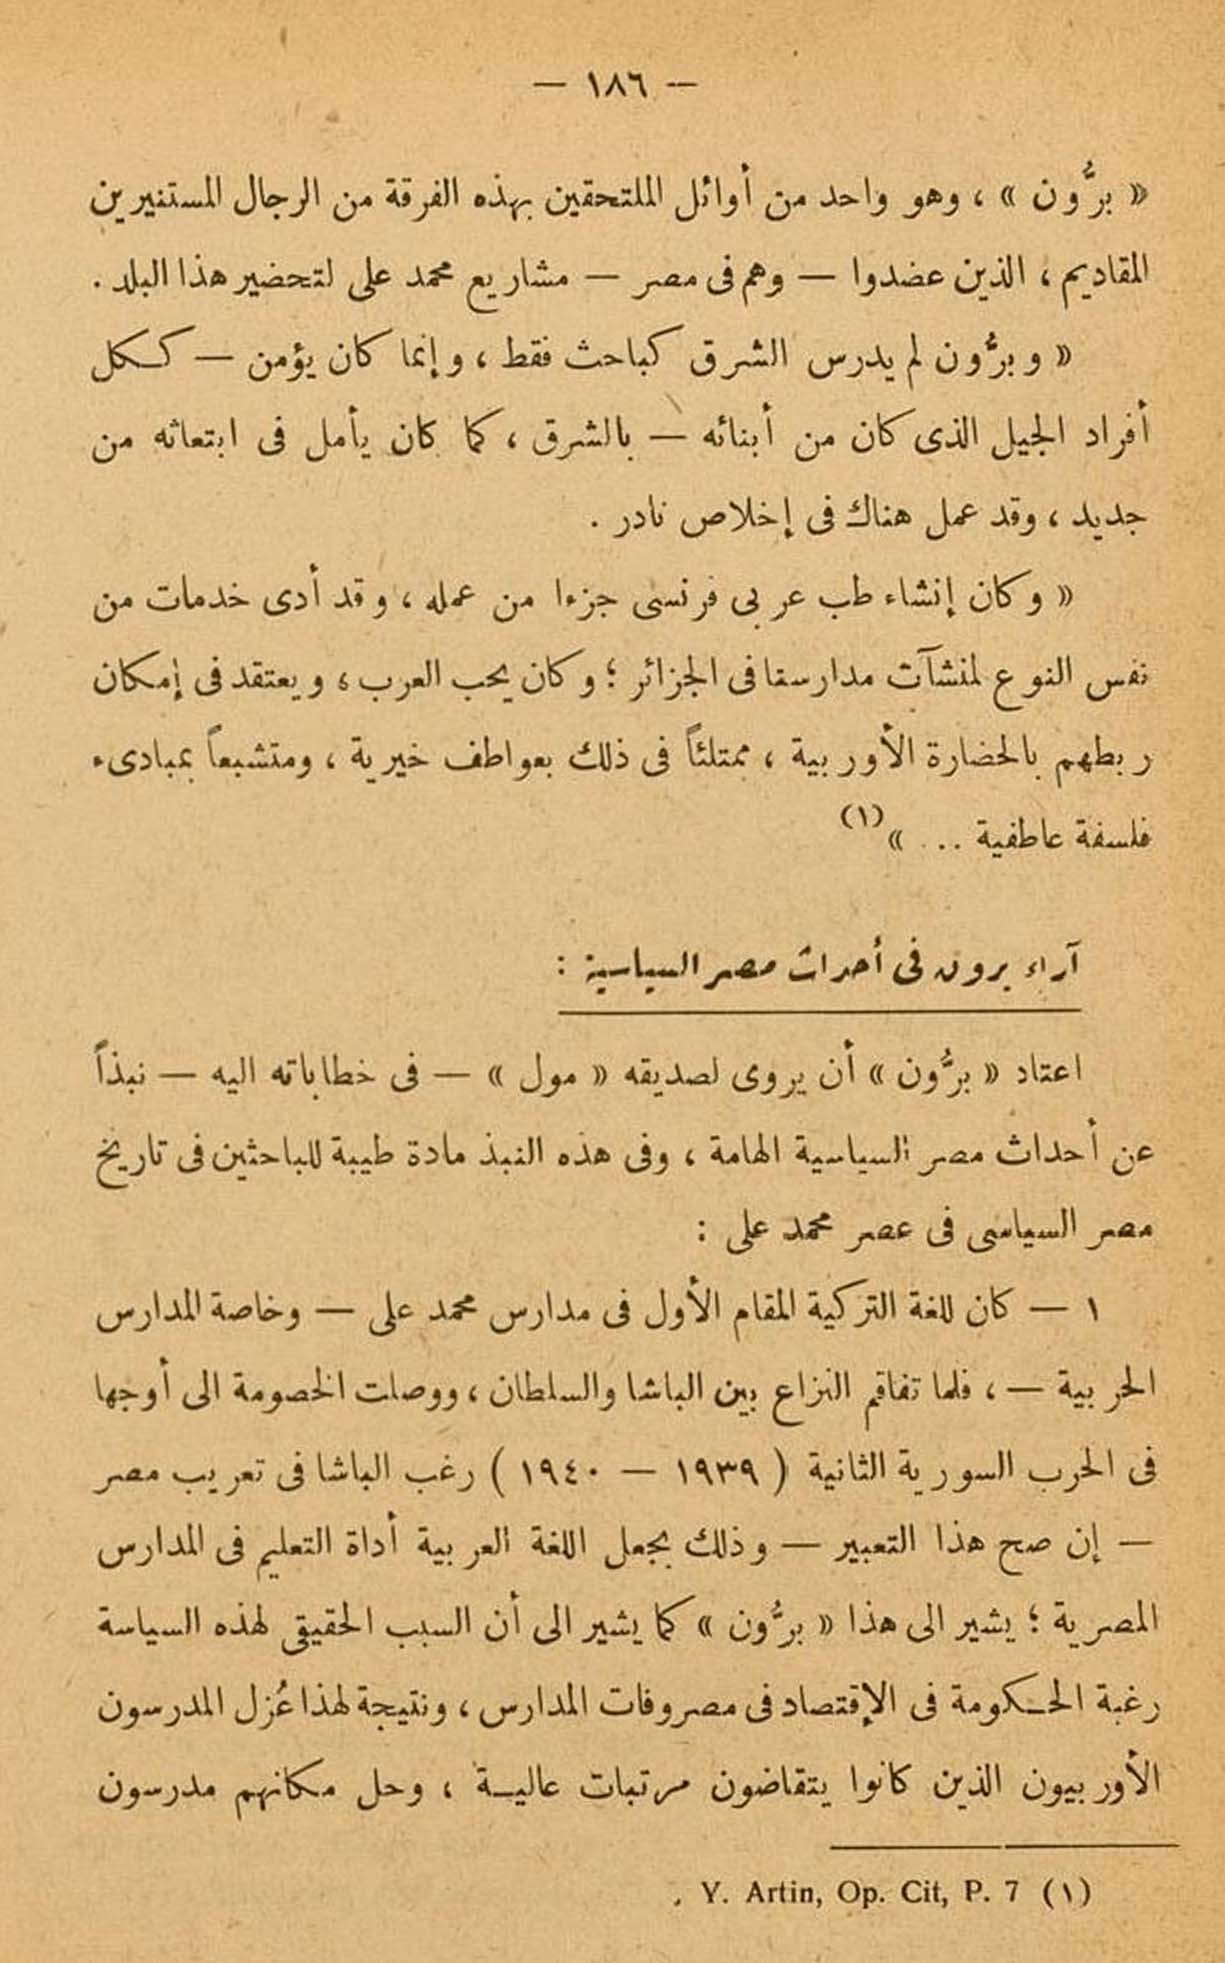 — ١٨٦ —
« برُّون » ، وهو واحد من أوائل الملتحقين بهذه الفرقة من الرجال المستنيرين
المقاديم ، الذين عضدوا — وهم فى مصر — مشاريع محمد على لتحضير هذا البلد .
« وبرُّون لم يدرس الشرق كباحث فقط ، وإنما كان يؤمن — ككل
أفراد الجيل الذى كان من أبنائه — بالشرق ، كما كان يأمل فى ابتعاثه من
جديد ، وقد عمل هناك فى إخلاص نادر .
« وكان إنشاء طب عربى فرنسى جزءا من عمله ، وقد أدى خدمات من
نفس النوع لمنشآت مدارسنا فى الجزائر ؛ وكان يحب العرب ، ويعتقد فى إمكان
ربطهم بالحضارة الأوربية ، ممتلئاً فى ذلك بعواطف خيرية ، ومتشبعاً بمبادىء
فلسفة عاطفية ... » (١)
آراء برون فى أحداث مصر السياسية :
اعتاد « برُّون » أن يروى لصديقه « مول » — فى خطاباته اليه — نبذاً
عن أحداث مصر السياسية الهامة ، وفى هذه النبذ مادة طيبة للباحثين فى تاريخ
مصر السياسى فى عصر محمد على :
١ — كان للغة التركية المقام الأول فى مدارس محمد على — وخاصة المدارس
الحربية — ، فلما تفاقم النزاع بين الباشا والسلطان ، ووصلت الخصومة الى أوجها
فى الحرب السورية الثانية ( ١٩٣٩ — ١٩٤٠ ) رغب الباشا فى تعريب مصر
— إن صح هذا التعبير — وذلك بجعل اللغة العربية أداة التعليم فى المدارس
المصرية ؛ يشير الى هذا « برُّون » كما يشير الى أن السبب الحقيقى لهذه السياسة
رغبة الحكومة فى الإقتصاد فى مصروفات المدارس ، ونتيجة لهذا عُزل المدرسون
الأوربيون الذين كانوا يتقاضون مرتبات عالية ، وحل مكانهم مدرسون
(١) Y. Artin, Op. Cit, P. 7 .